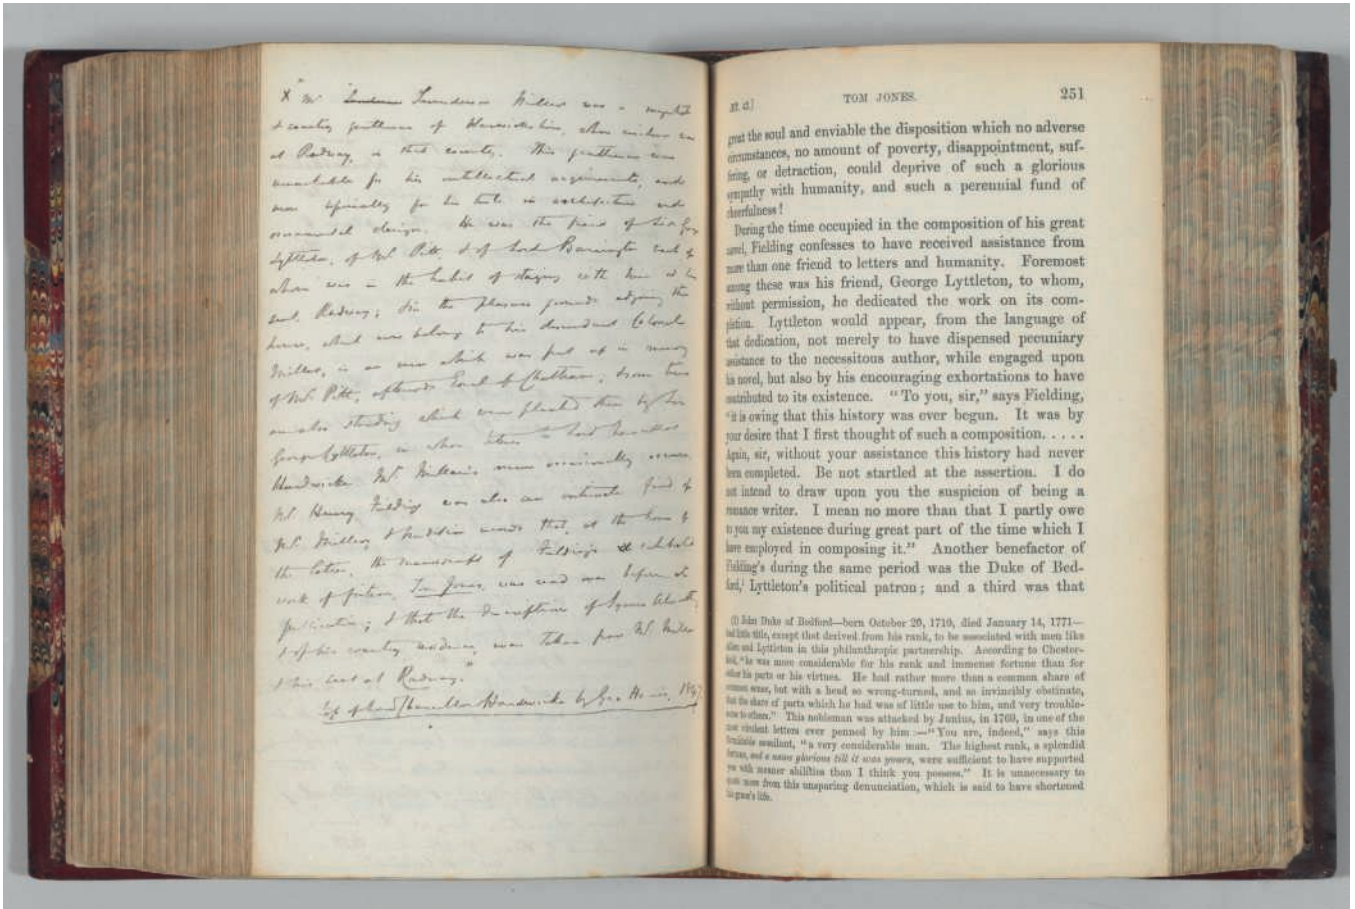 X " Mr Sanderson Miller was a
& country gentleman of Warwickshire, whose residence was
at Radway, in that county. This gentleman was
remarkable for his intellectual acquirements, and
more especially for his taste in architecture and
ornamental design. He was the friend of Sir Geo
Lyttleton, of Mr. Pitt, & of Lord Barrington each of
whom was in the habit of staying with him at his
seat, Radway; & in the pleasure grounds adjoining the
house, which now belong to his descendant Colonel
Miller, is an urn which was put up in memory
of Mr. Pitt, afterwards Earl of Chatham; & some trees
are also standing which were planted there by Sir
George Lyttleton, in whose letters to Lord Chancellor
Hardwicke Mr. Miller's name occasionally occurs.
Mr. Henry Fielding was also an intimate friend of
Mr. Miller, & tradition records that, at the house of
the latter, the manuscript of Fielding's celebrated
work of fiction, Tom Jones, was read over before its
publication; & that the description of Squire Allworthy,
& of his country residence, was taken from Mr. Miller
& his seat at Radway."
Life of Lord Chancellor Hardwicke by Geo Harris, 1847
TOM JONES. 251
great the soul and enviable the disposition which no adverse
circumstances, no amount of poverty, disappointment, suf-
fering, or detraction, could deprive of such a glorious
sympathy with humanity, and such a perennial fund of
cheerfulness!
During the time occupied in the composition of his great
novel, Fielding confesses to have received assistance from
more than one friend to letters and humanity. Foremost
among these was his friend, George Lyttleton, to whom,
without permission, he dedicated the work on its com-
pletion. Lyttleton would appear, from the language of
that dedication, not merely to have dispensed pecuniary
assistance to the necessitous author, while engaged upon
his novel, but also by his encouraging exhortations to have
contributed to its existence. "To you, sir," says Fielding,
"it is owing that this history was ever begun. It was by
your desire that I first thought of such a composition. . . . .
Again, sir, without your assistance this history had never
been completed. Be not startled at the assertion. I do
not intend to draw upon you the suspicion of being a
romance writer. I mean no more than that I partly owe
to you my existence during great part of the time which I
have employed in composing it." Another benefactor of
Fielding's during the same period was the Duke of Bed-
ford,¹ Lyttleton's political patron; and a third was that
(1) John Duke of Bedford—born October 20, 1710, died January 14, 1771—
had little title, except that derived from his rank, to be associated with men like
Allen and Lyttleton in this philanthropic partnership. According to Chester-
field, "he was more considerable for his rank and immense fortune than for
either his parts or his virtues. He had rather more than a common share of
common sense, but with a head so wrong-turned, and so invincibly obstinate,
that the share of parts which he had was of little use to him, and very trouble-
some to others." This nobleman was attacked by Junius, in 1769, in one of the
most virulent letters ever penned by him:—"You are, indeed," says this
formidable assailant, "a very considerable man. The highest rank, a splendid
fortune, and a name glorious till it was yours, were sufficient to have supported
you with meaner abilities than I think you possess." It is unnecessary to
quote more from this unsparing denunciation, which is said to have shortened
his grace's life.